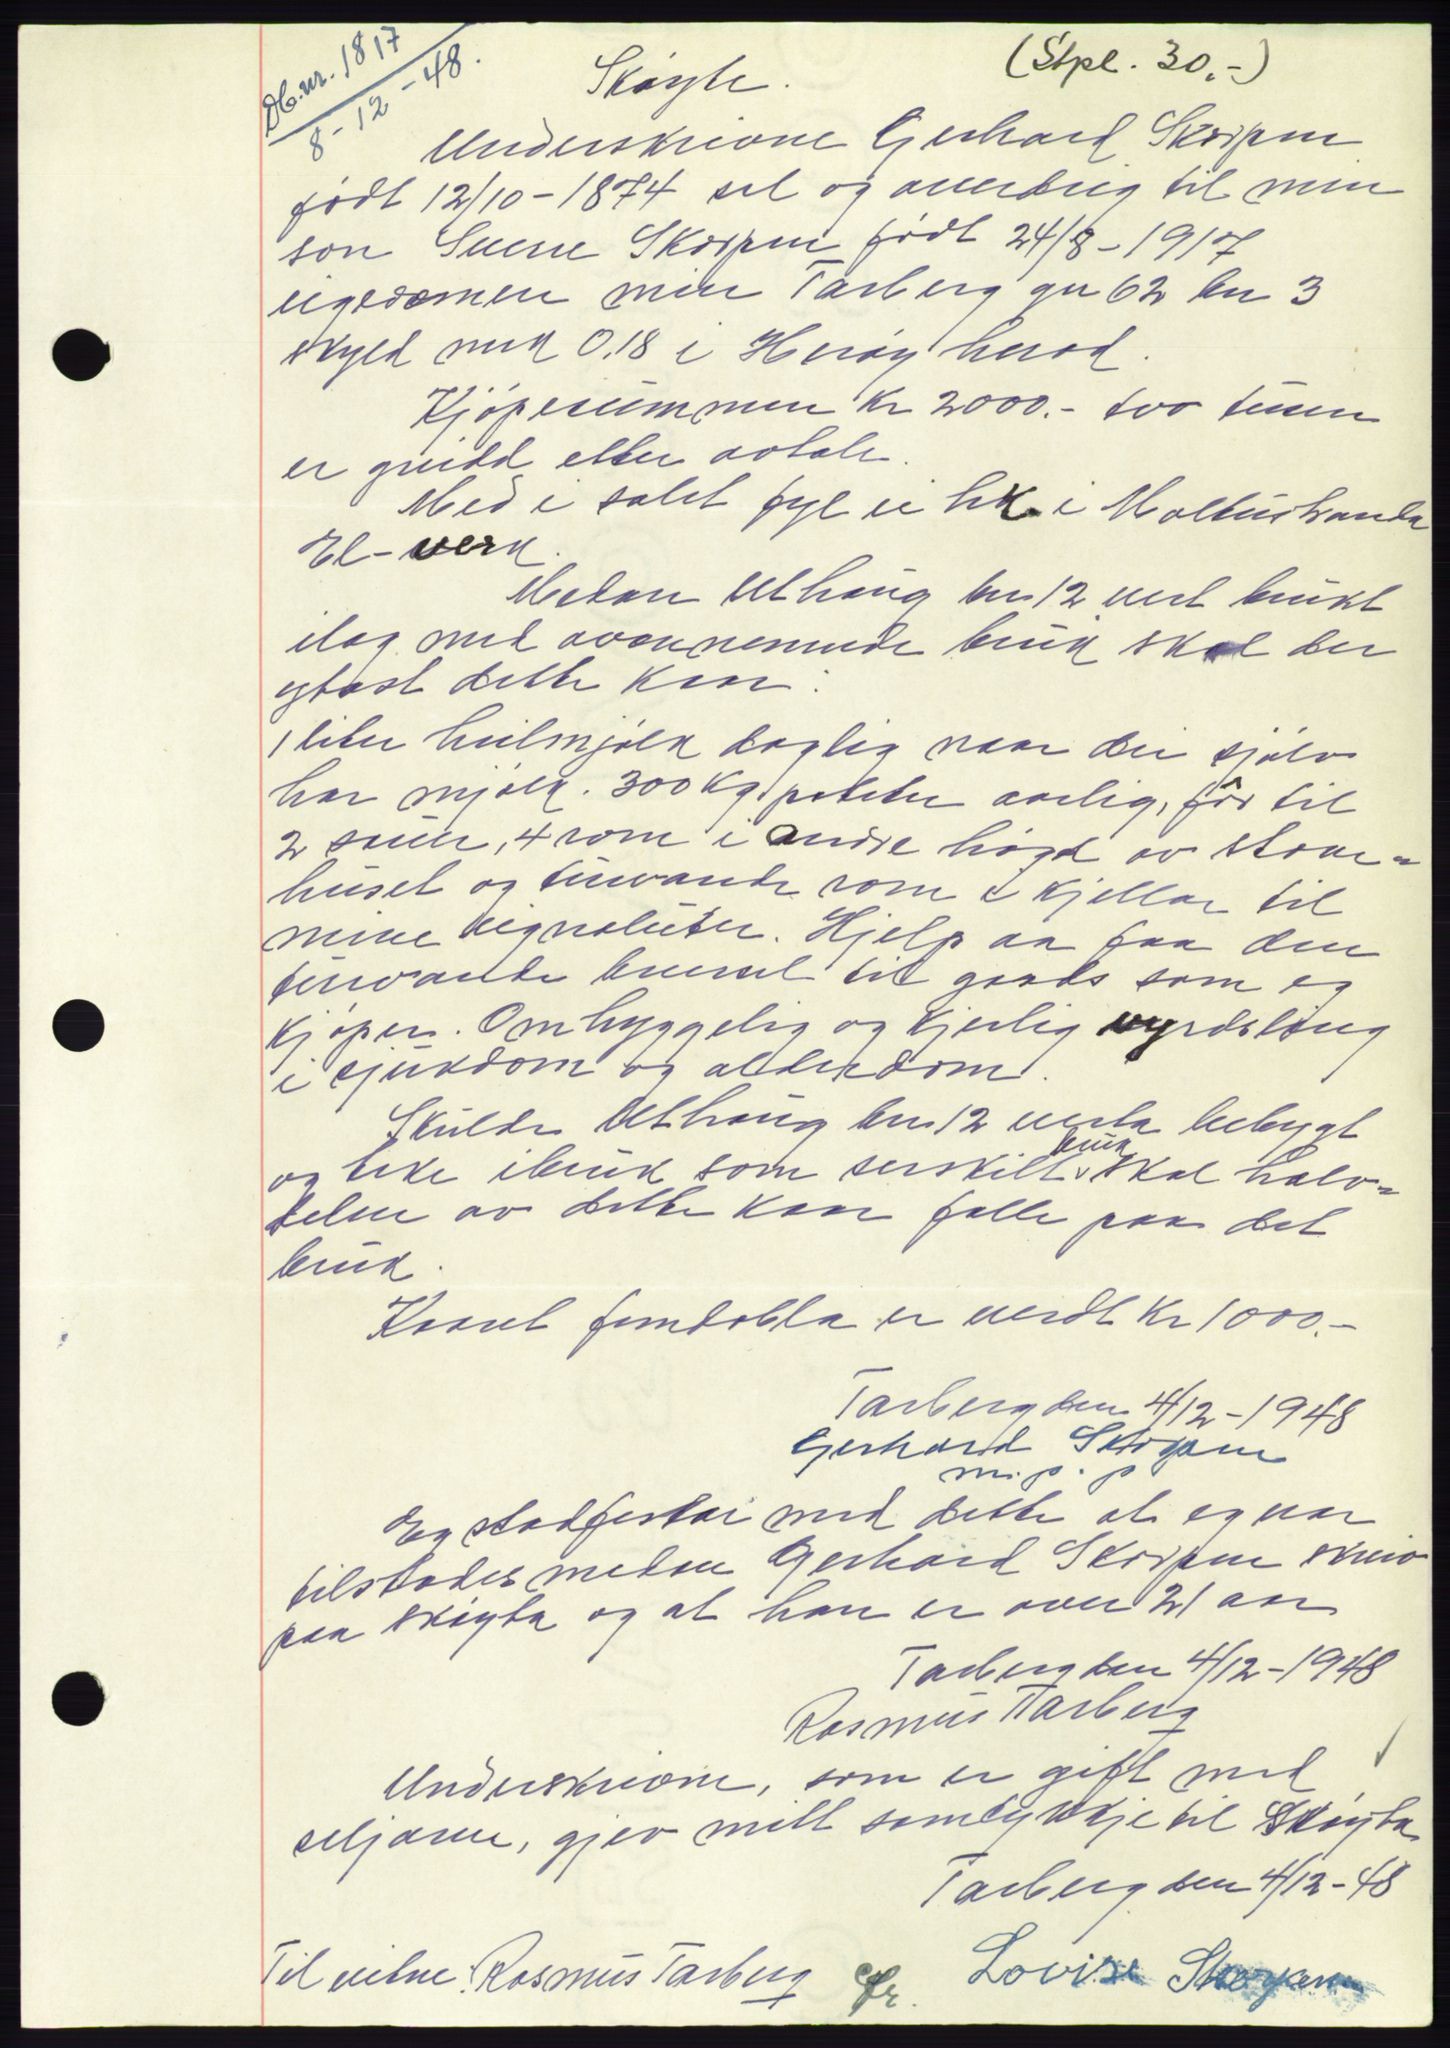 Db.nr. 1817
8-12-48.
(Stpl. 30.-)
Skøyte.
Underskrivne Gerhard Skorpen
født 12/10-1874 sel og overdreg til min
son Sverre Skorpen født 24/8-1917
eigedomen min Tarberg gn 62 bn 3
skyld mrk 0,18 i Herøy herad.
Kjøpesummen kr 2000.- tvo tusen
er greidd etter avtale.
Med i salet fyl ei hk i Moltustranda
El-verk.
Medan Uthaug bn 12 vert brukt
ilag med ovannemnde bruk skal der
ytast dette kaar:
1 liter heilmjølk dagleg naar dei sjølv
har mjølk. 300 kg poteter aarleg, fôr til
2 sauer, 4 rom i andre høgd av stove-
huset og turvande rom i kjellar til
mine eignaluter. Hjelp aa faa den
turvande brensel til gards som eg
kjøper. Omhyggelig og kjerlig vyrdsling
i sjukdom og alderdom.
Skulde Uthaug bn 12 verta bebygt
og teke ibruk som serskilt bruk skal halv-
delen av dette kaar falle paa det
bruk.
Kaaret femdobla er verdt kr 1000.-
Tarberg den 4/12-1948
Gerhard Skorpen
m. p. p
Eg stadfestar med dette at eg var
tilstades medan Gerhard Skorpen skreiv
paa skøyta og at han er over 21 aar
Tarberg den 4/12-1948
Rasmus Tarberg
Underskrivne, som er gift med
seljaren, gjev mitt samtykkje til skøyta
Tarberg den 4/12-48
Til vitne: Rasmus Tarberg Lovise Skorpen